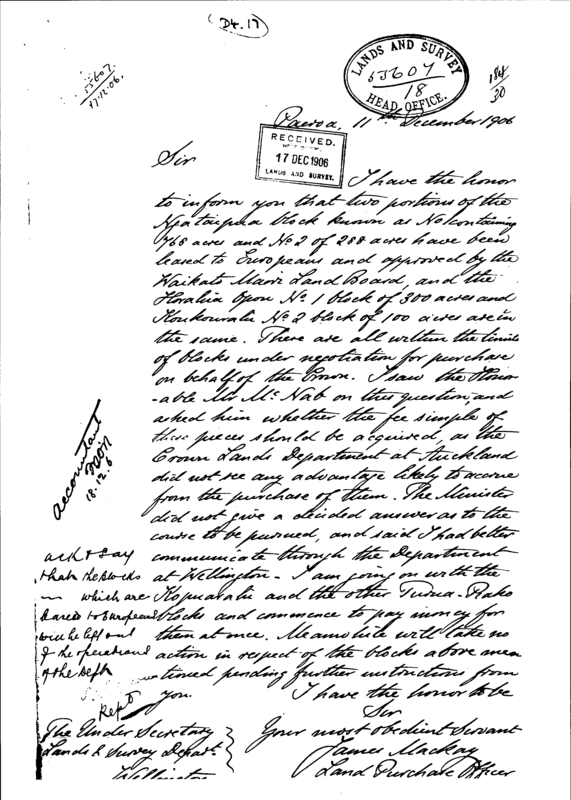 (D4.17)
55607.
17.12.06.
LANDS AND SURVEY
55607
18
HEAD OFFICE.
30
Paeroa, 11th December 1906
RECEIVED.
17 DEC 1906
LANDS AND SURVEY.
Sir
I have the honor
to inform you that two portions of the
block known as No containing
768 acres and No 2 of 288 acres have been
leased to Europeans and approved by the
Waikato Maori Land Board, and the
Horahia Opou No 1 block of 300 acres and
No 2 block of 100 acres are in
the same. These are all within the limits
of blocks under negotiation for purchase
on behalf of the Crown. I saw the Honor
-able Mr McNab on this question, and
asked him whether the fee simple of
these pieces should be acquired, as the
Crown Lands Department at Auckland
did not see any advantage likely to accrue
from the purchase of them. The Minister
did not give a decided answer as to the
course to be pursued, and said I had better
communicate through the Department
at Wellington - I am going on with the
and the other
blocks and commence to pay money for
them at once. Meanwhile will take no
action in respect of the blocks above men
tioned pending further instructions from
you.
I have the honor to be
Sir
Your most obedient Servant
James Mackay
Land Purchase Officer
The Under Secretary
Lands & Survey Departt.
Wellington
accountant
18.12.6
ack & say
that the blocks
which are
leased to Europeans
will be left out
of the operations
of the Dept